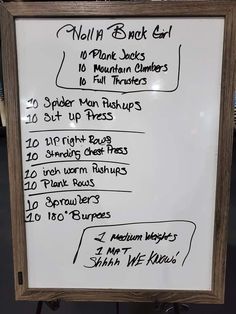 Nolla Back Girl
10 Plank Jacks
10 Mountain Climbers
10 Full Thrusters
10 Spider Man Pushups
10 Sit up Press
10 Upright Rows
10 Standing Chest Press
10 inch worm Pushups
10 Plank Rows
10 Sprawlers
10 180° Burpees
2 Medium Weights
1 MAT
Shhhh WE KNOW!